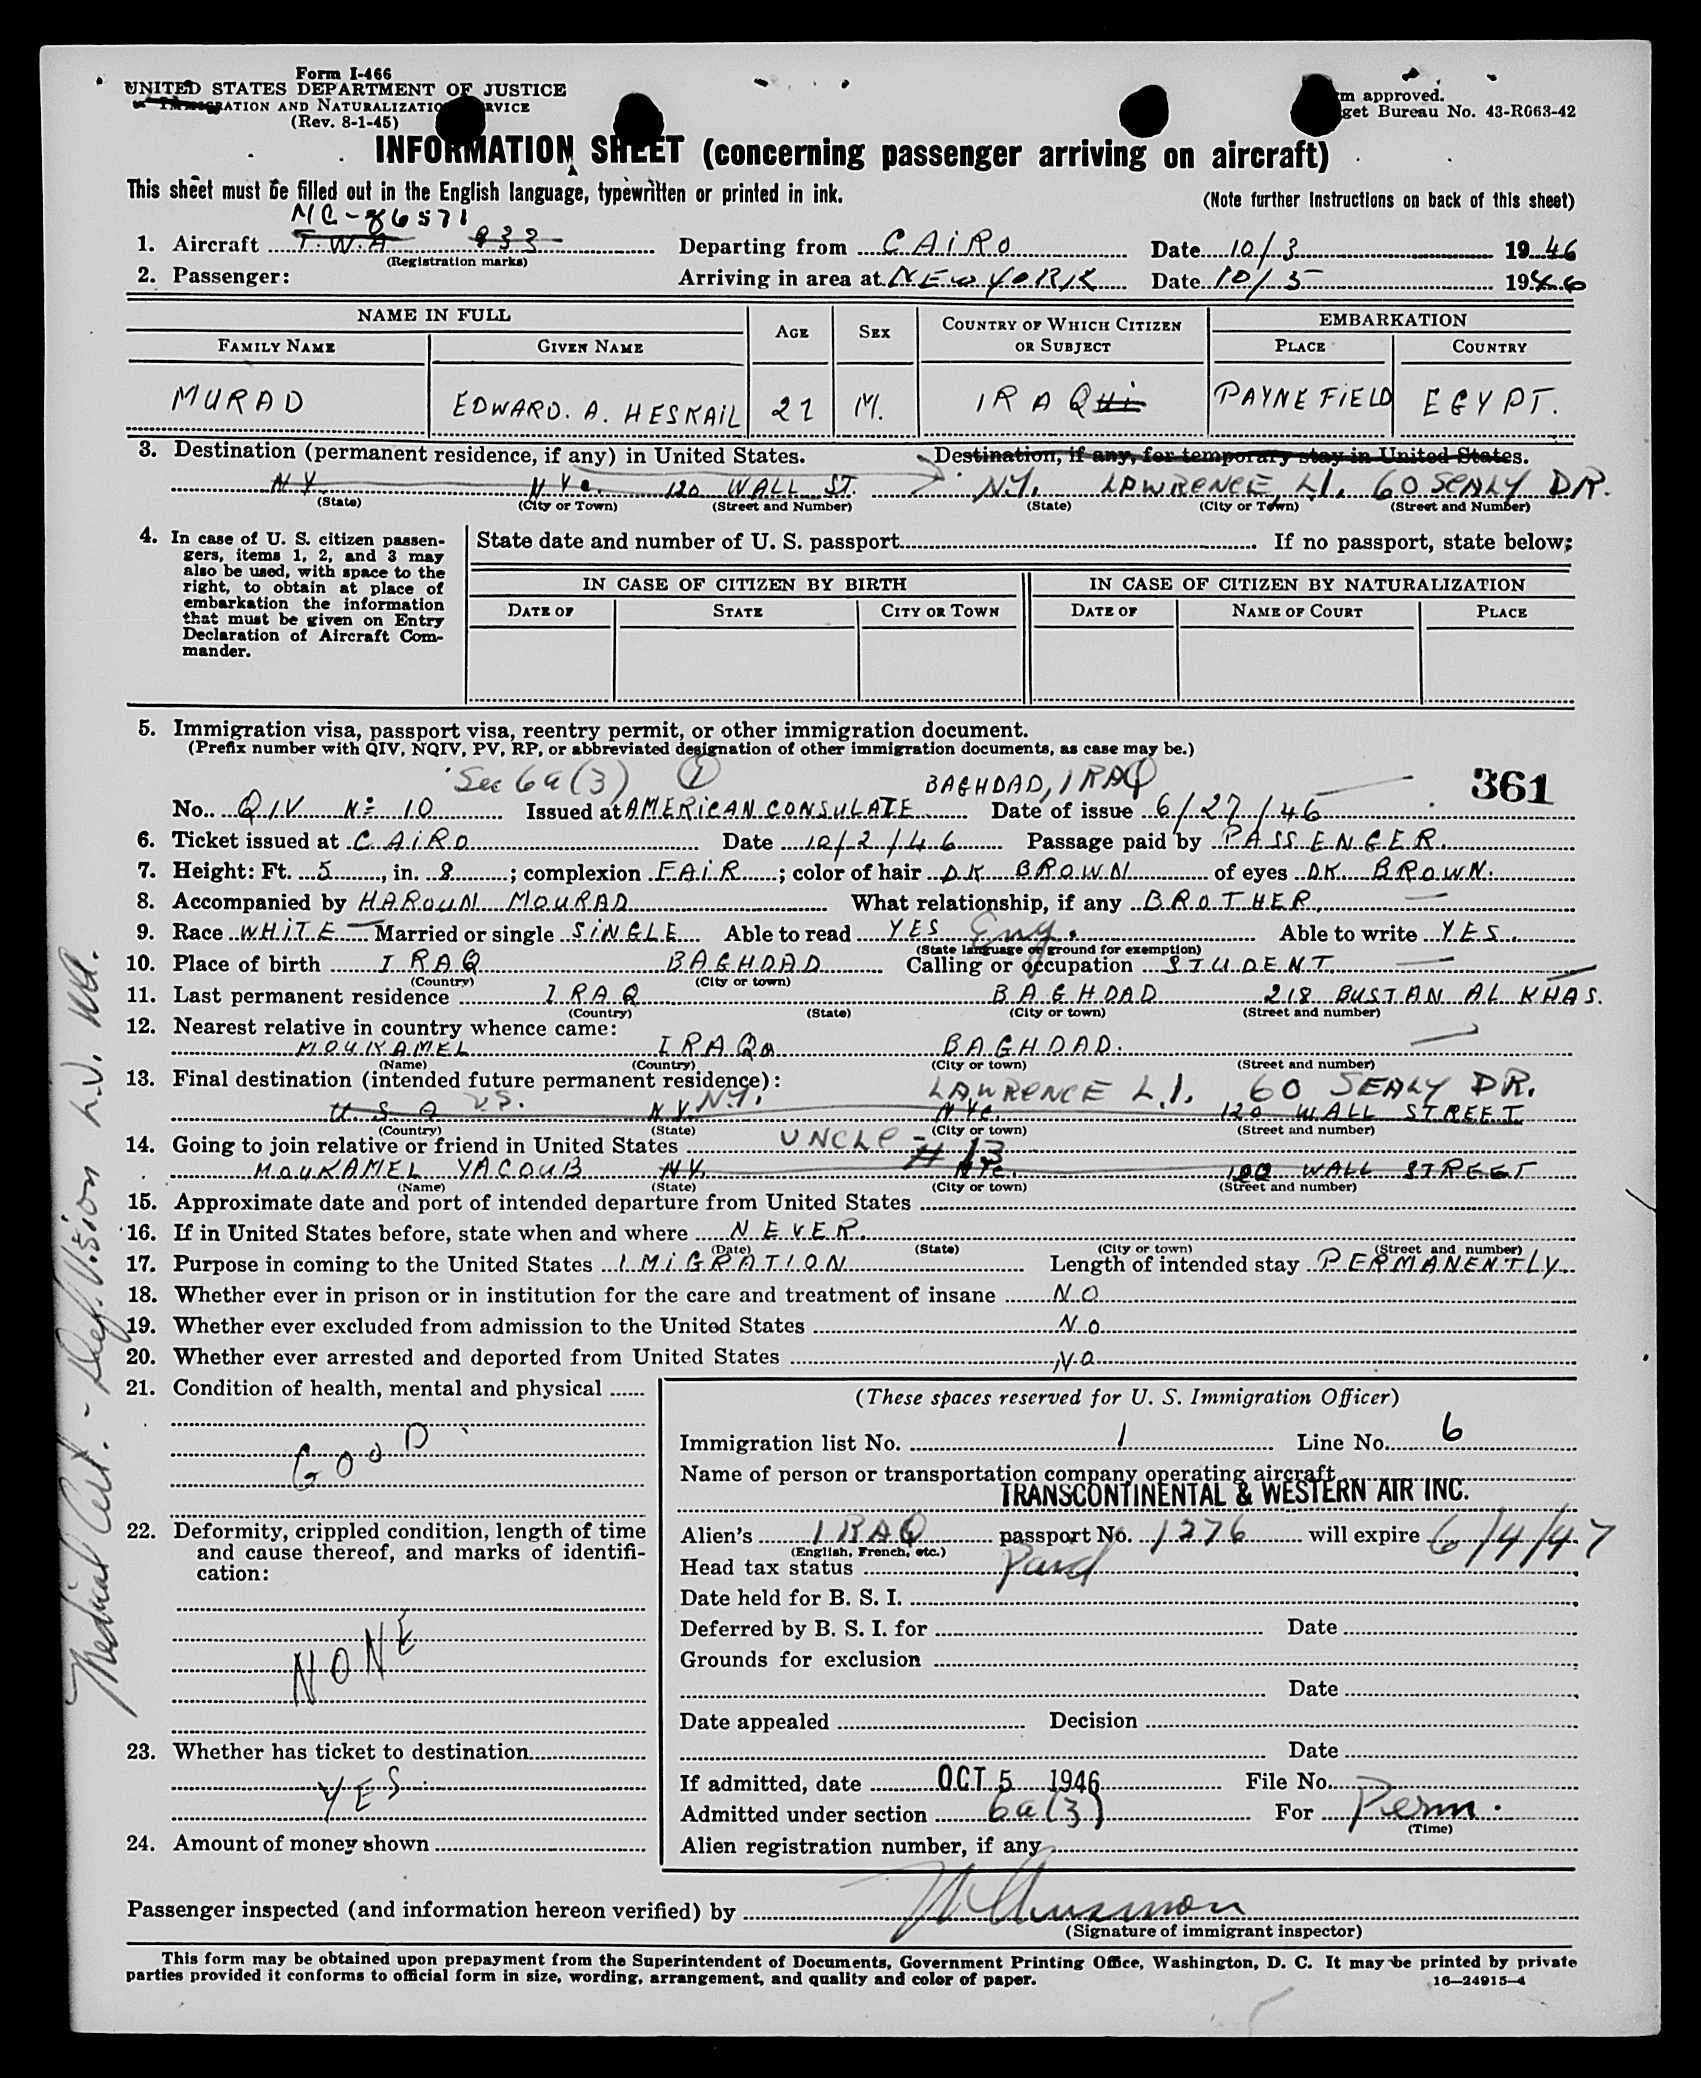 Form I-466
UNITED STATES DEPARTMENT OF JUSTICE
IMMIGRATION AND NATURALIZATION SERVICE
(Rev. 8-1-45)
m approved.
get Bureau No. 43-R063-42
INFORMATION SHEET (concerning passenger arriving on aircraft)
This sheet must be filled out in the English language, typewritten or printed in ink.
(Note further instructions on back of this sheet)
NC-86571
1. Aircraft T.W.A 933 Departing from CAIRO Date 10/3 1946
(Registration marks)
2. Passenger: Arriving in area at NEW YORK Date 10/5 1946
NAME IN FULL AGE SEX COUNTRY OF WHICH CITIZEN OR SUBJECT EMBARKATION
FAMILY NAME GIVEN NAME PLACE COUNTRY
MURAD EDWARD. A. HESKAIL 21 M. IRAQHi PAYNE FIELD EGYPT.
3. Destination (permanent residence, if any) in United States. Destination, if any, for temporary stay in United States.
N Y N Y c. 120 WALL ST. N.Y. LAWRENCE, L.I. 60 SEALY DR.
(State) (City or Town) (Street and Number) (State) (City or Town) (Street and Number)
4. In case of U. S. citizen passengers, items 1, 2, and 3 may also be used, with space to the right, to obtain at place of embarkation the information that must be given on Entry Declaration of Aircraft Commander.
State date and number of U. S. passport If no passport, state below:
IN CASE OF CITIZEN BY BIRTH IN CASE OF CITIZEN BY NATURALIZATION
DATE OF STATE CITY OR TOWN DATE OF NAME OF COURT PLACE
5. Immigration visa, passport visa, reentry permit, or other immigration document.
(Prefix number with QIV, NQIV, PV, RP, or abbreviated designation of other immigration documents, as case may be.)
Sec 6a(3) BAGHDAD, IRAQ 361
No. QIV Nº 10 Issued at AMERICAN CONSULATE Date of issue 6/27/46
6. Ticket issued at CAIRO Date 10/2/46 Passage paid by PASSENGER.
7. Height: Ft. 5, in. 8; complexion FAIR; color of hair DK BROWN of eyes DK. BROWN.
8. Accompanied by HAROUN MOURAD What relationship, if any BROTHER
9. Race WHITE Married or single SINGLE Able to read YES Eng. Able to write YES.
(State language or ground for exemption)
10. Place of birth IRAQ BAGHDAD Calling or occupation STUDENT
(Country) (City or town)
11. Last permanent residence IRAQ BAGHDAD 218 BUSTAN AL KHAS.
(Country) (State) (City or town) (Street and number)
12. Nearest relative in country whence came:
MOUKAMEL IRAQ BAGHDAD.
(Name) (Country) (City or town) (Street and number)
13. Final destination (intended future permanent residence):
U.S. N.Y. LAWRENCE L.I. 60 SEALY DR.
U S A N Y. N Yc. 120 WALL STREET
(Country) (State) (City or town) (Street and number)
14. Going to join relative or friend in United States UNCLE - # 13
MOUKAMEL YACOUB N.Y. N Yc. 120 WALL STREET
(Name) (State) (City or town) (Street and number)
15. Approximate date and port of intended departure from United States
16. If in United States before, state when and where NEVER.
(Date) (State) (City or town) (Street and number)
17. Purpose in coming to the United States IMIGRATION Length of intended stay PERMANENTLY
18. Whether ever in prison or in institution for the care and treatment of insane NO
19. Whether ever excluded from admission to the United States No
20. Whether ever arrested and deported from United States NO
21. Condition of health, mental and physical
GOOD
22. Deformity, crippled condition, length of time and cause thereof, and marks of identification:
NONE
23. Whether has ticket to destination
YES
24. Amount of money shown
(These spaces reserved for U. S. Immigration Officer)
Immigration list No. 1 Line No. 6
Name of person or transportation company operating aircraft
TRANSCONTINENTAL & WESTERN AIR INC.
Alien's IRAQ passport No. 1276 will expire 6/4/47
(English, French, etc.)
Head tax status Paid
Date held for B. S. I.
Deferred by B. S. I. for Date
Grounds for exclusion
Date
Date appealed Decision
Date
If admitted, date OCT 5 1946 File No.
Admitted under section 6a(3) For Perm.
(Time)
Alien registration number, if any
Passenger inspected (and information hereon verified) by
(Signature of immigrant inspector)
This form may be obtained upon prepayment from the Superintendent of Documents, Government Printing Office, Washington, D. C. It may be printed by private
parties provided it conforms to official form in size, wording, arrangement, and quality and color of paper.
16—24915-4
Medical Cert. - Def. Vision